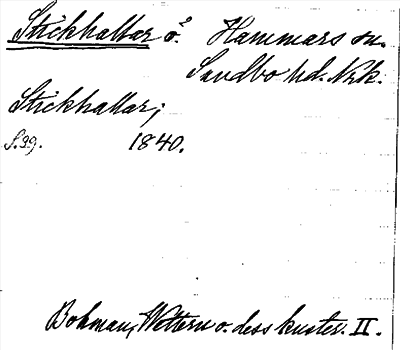 Stickhallar ö. Hammars sn.
Sundbo hd. Nrk.
Stickhallar;
S.39. 1840.
Bohman, Wettern o. dess kuster. II.